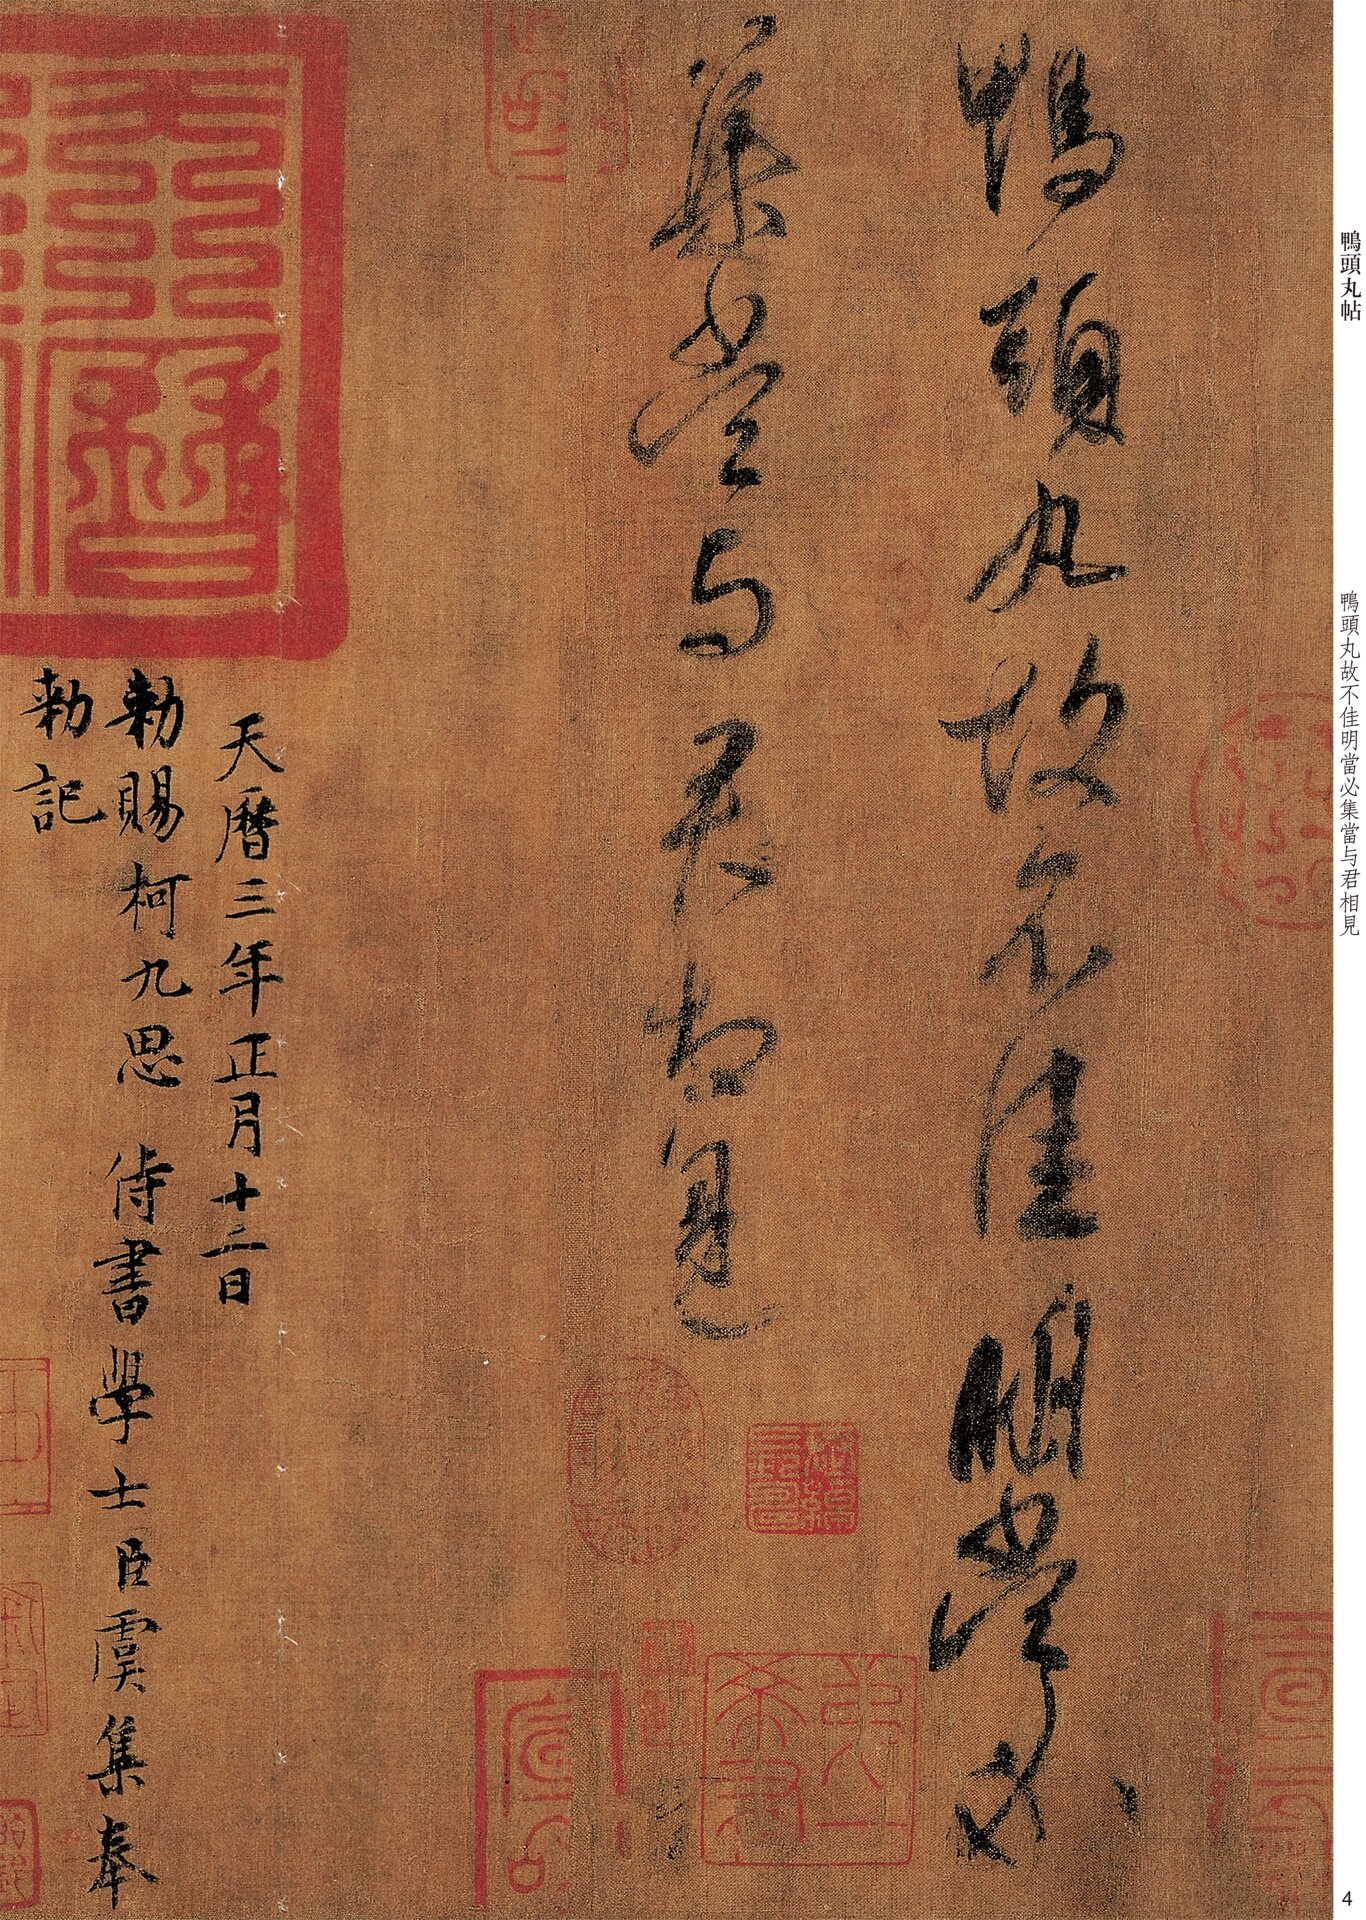 鴨頭丸帖
鴨頭丸故不佳明當必集當与君相見
鴨頭丸故不佳明當必
集當与君相見
天曆三年正月十二日
勑賜柯九思侍書學士臣虞集奉
勑記
天曆
4